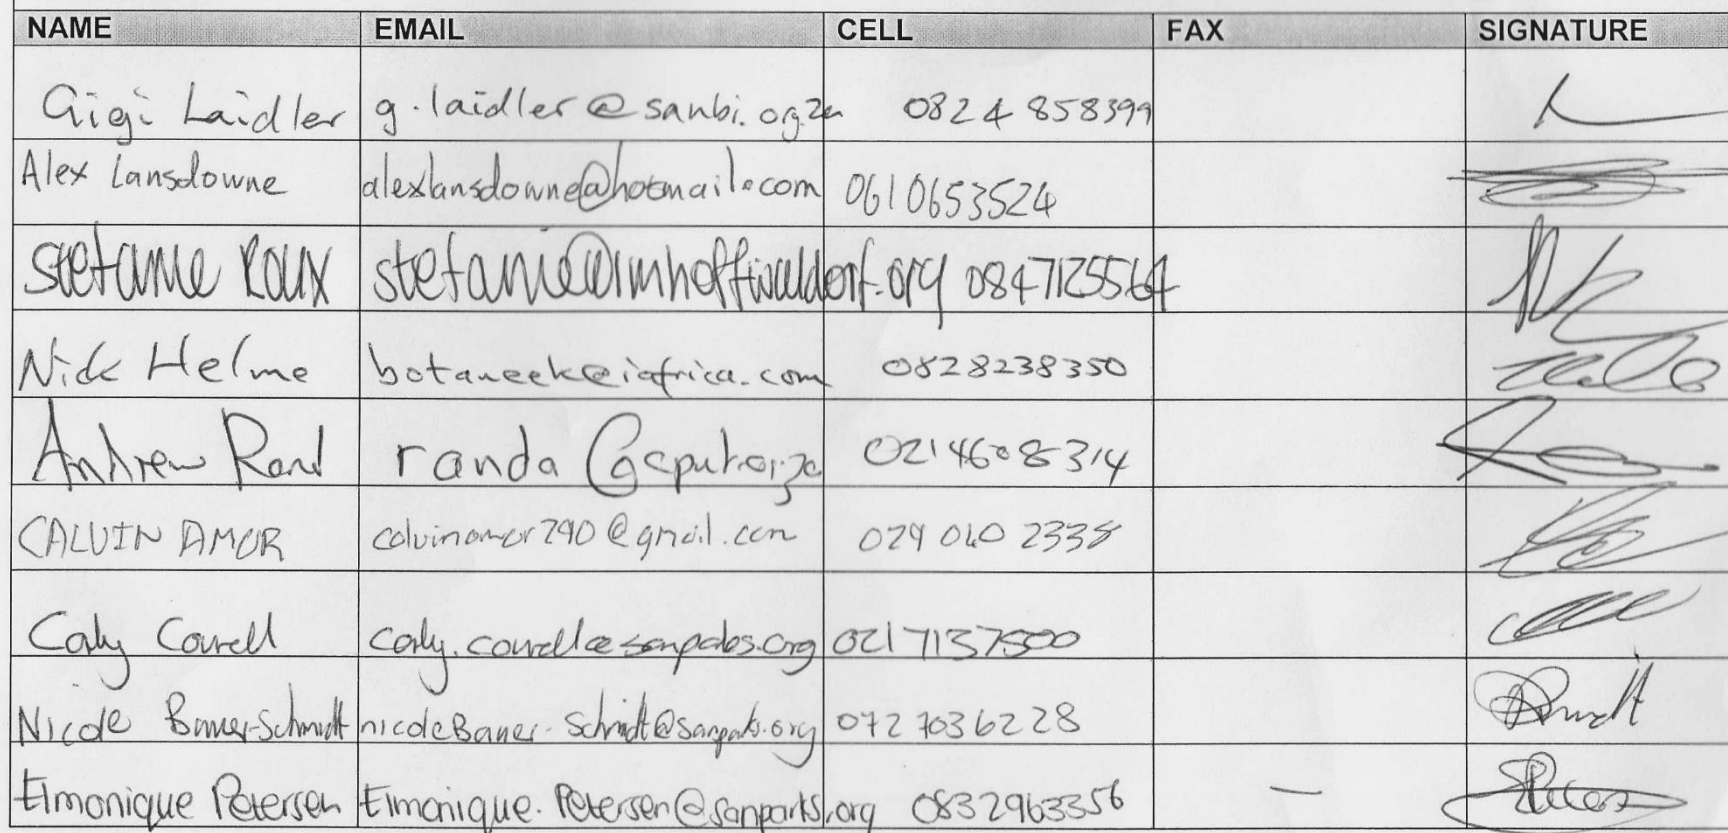 NAME EMAIL CELL FAX SIGNATURE
Gigi Laidler g.laidler@sanbi.org.za 0824858399
Alex Lansdowne alexlansdowne@hotmail.com 0610653524
Stefanie Roux stefanie@imhoffwaldorf.org 0847125564
Nick Helme botaneek@iafrica.com 0828238350
Andrew Rand 0214608314
CALVIN AMOR calvinamor290@gmail.com
Carly Cowell carly.cowell@sanparks.org 0217137500
Nicole Bauer-Schmidt 0727036228
Elmonique Petersen Elmonique.Petersen@sanparks.org 0832963356 —